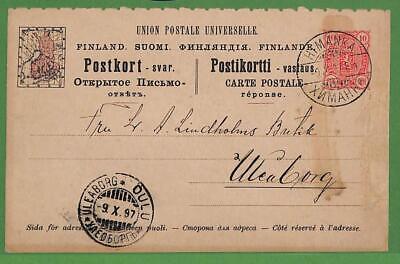 UNION POSTALE UNIVERSELLE.
FINLAND. SUOMI. ФИНЛЯНДІЯ. FINLANDE.
Postkort - svar. Postikortti - vastaus.
Открытое Письмо- CARTE POSTALE
отвѣтъ. réponse.
10
HIMANKA
ХИМАНКА
Fru L. A. Lindholms Butik
Uleåborg
ULEABORG * OULU
9. X. 97
УЛЕОБОРГЪ
Sida för adressen puoli. — Сторона для адреса. — Côté réservé à l'adresse.